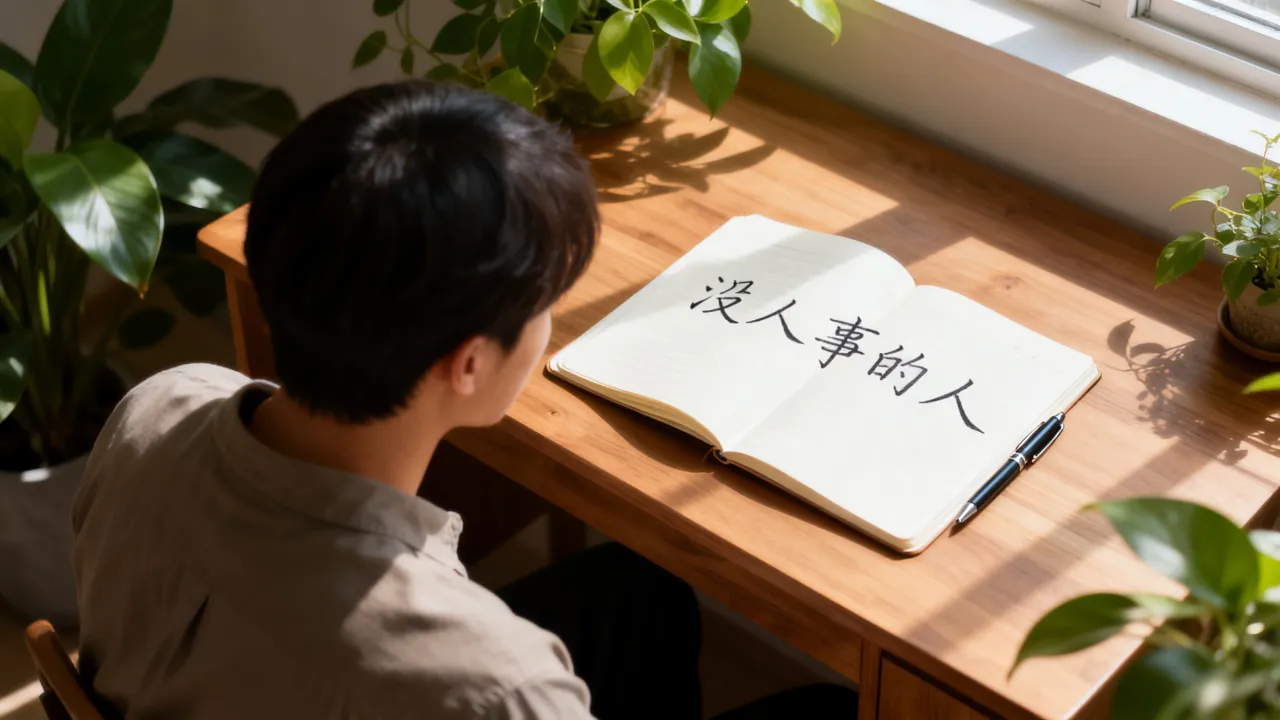 没人事的人